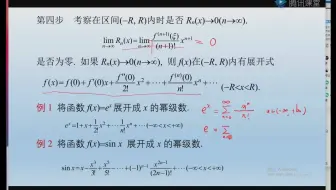 腾讯课堂
第四步 考察在区间(-R, R)内时是否 Rₙ(x)→0(n→∞),
lim Rₙ(x)=lim f⁽ⁿ⁺¹⁾(ξ)/(n+1)! xⁿ⁺¹ = 0
n→∞ n→∞
是否为零. 如果 Rₙ(x)→0(n→∞), 则 f(x)在(-R, R)内有展开式
f(x)=f(0)+f′(0)x+f″(0)/2! x²+ ··· +f⁽ⁿ⁾(0)/n! xⁿ+ ··· (-R<x<R).
例1 将函数 f(x)=eˣ 展开成 x 的幂级数.
eˣ=1+x+1/2! x²+ ··· +1/n! xⁿ+ ··· (-∞<x<+∞)
eˣ = ∑ xⁿ/n! x∈(-∞,+∞)
e = ∑
例2 将函数 f(x)=sin x 展开成 x 的幂级数.
sin x=x-x³/3!+x⁵/5!- ··· +(-1)ⁿ⁻¹ x²ⁿ⁻¹/(2n-1)!+ ··· (-∞<x<+∞)